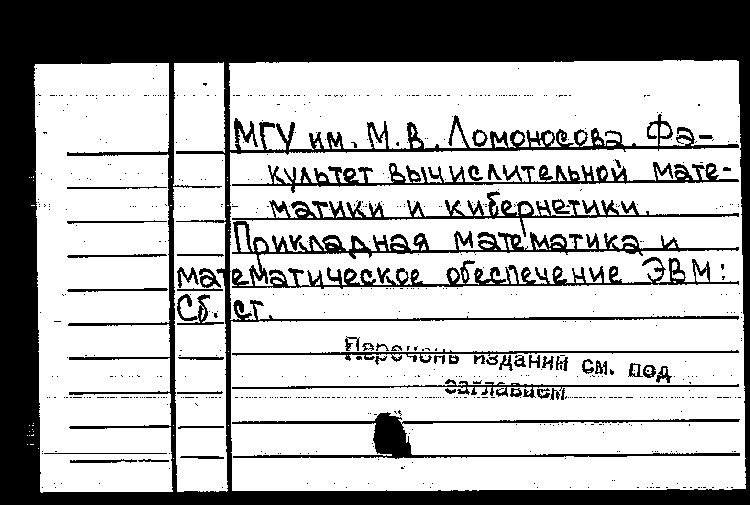 МГУ им. М.В. Ломоносова. Фа-
культет вычислительной мате-
матики и кибернетики.
Прикладная математика и
математическое обеспечение ЭВМ:
Сб. ст.
Перечень изданий см. под
заглавием